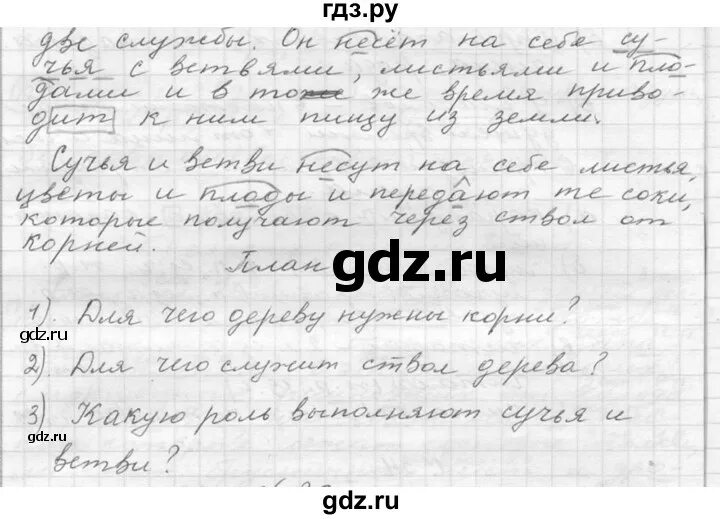 гдз.ру
две службы. Он несёт на себе су-
чья с ветвями, листьями и пло-
дами и в то же время приво-
дит к ним пищу из земли.
Сучья и ветви несут на себе листья,
цветы и плоды и передают те соки,
которые получают через ствол от
корней.
План
gdz.ru
1). Для чего дереву нужны корни?
gdz.ru
2). Для чего служит ствол дерева?
3) Какую роль выполняют сучья и
gdz.ru
ветви?
gdz.ru